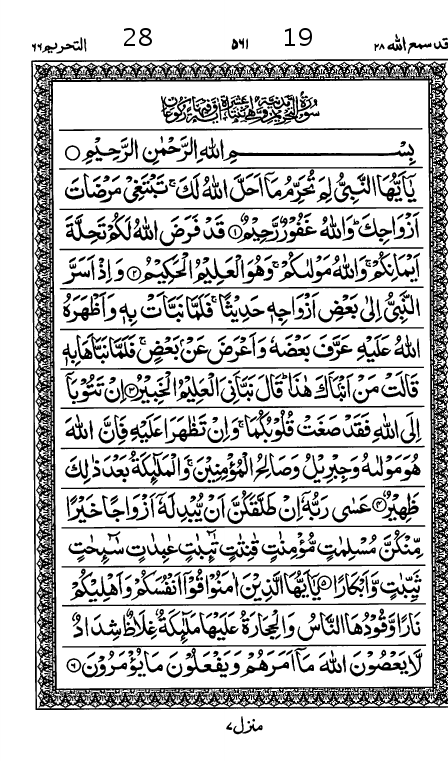 قد سمع الله ٢٨ 19 ٥٦١ 28 التحريم ٦٦
سُوْرَةُ التَّحْرِيْمِ مَدَنِيَّةٌ وَّهِيَ اثْنَتَا عَشْرَةَ اٰيَةً وَّفِيْهَا رُكُوْعَانِ
بِسْمِ اللهِ الرَّحْمٰنِ الرَّحِيْمِ ○
يٰۤاَيُّهَا النَّبِىُّ لِمَ تُحَرِّمُ مَاۤ اَحَلَّ اللهُ لَكَ ۚ تَبْتَغِىْ مَرْضَاتَ
اَزْوَاجِكَ ؕ وَاللهُ غَفُوْرٌ رَّحِيْمٌ ﴿۱﴾ قَدْ فَرَضَ اللهُ لَكُمْ تَحِلَّةَ
اَيْمَانِكُمْ ۚ وَاللهُ مَوْلٰىكُمْ ۚ وَهُوَ الْعَلِيْمُ الْحَكِيْمُ ﴿۲﴾ وَاِذْ اَسَرَّ
النَّبِىُّ اِلٰى بَعْضِ اَزْوَاجِهٖ حَدِيْثًا ۚ فَلَمَّا نَبَّاَتْ بِهٖ وَاَظْهَرَهُ
اللهُ عَلَيْهِ عَرَّفَ بَعْضَهٗ وَاَعْرَضَ عَنْۢ بَعْضٍ ۚ فَلَمَّا نَبَّاَهَا بِهٖ
قَالَتْ مَنْ اَنْۢبَاَكَ هٰذَا ؕ قَالَ نَبَّاَنِىَ الْعَلِيْمُ الْخَبِيْرُ ﴿۳﴾ اِنْ تَتُوْبَاۤ
اِلَى اللهِ فَقَدْ صَغَتْ قُلُوْبُكُمَا ۚ وَاِنْ تَظٰهَرَا عَلَيْهِ فَاِنَّ اللهَ
هُوَ مَوْلٰىهُ وَجِبْرِيْلُ وَصَالِحُ الْمُؤْمِنِيْنَ ۚ وَالْمَلٰٓئِكَةُ بَعْدَ ذٰلِكَ
ظَهِيْرٌ ﴿۴﴾ عَسٰى رَبُّهٗۤ اِنْ طَلَّقَكُنَّ اَنْ يُّبْدِلَهٗۤ اَزْوَاجًا خَيْرًا
مِّنْكُنَّ مُسْلِمٰتٍ مُّؤْمِنٰتٍ قٰنِتٰتٍ تٰٓئِبٰتٍ عٰبِدٰتٍ سٰٓئِحٰتٍ
ثَيِّبٰتٍ وَّاَبْكَارًا ﴿۵﴾ يٰۤاَيُّهَا الَّذِيْنَ اٰمَنُوْا قُوْۤا اَنْفُسَكُمْ وَاَهْلِيْكُمْ
نَارًا وَّقُوْدُهَا النَّاسُ وَالْحِجَارَةُ عَلَيْهَا مَلٰٓئِكَةٌ غِلَاظٌ شِدَادٌ
لَّا يَعْصُوْنَ اللهَ مَاۤ اَمَرَهُمْ وَيَفْعَلُوْنَ مَا يُؤْمَرُوْنَ ﴿۶﴾
منزل ۷